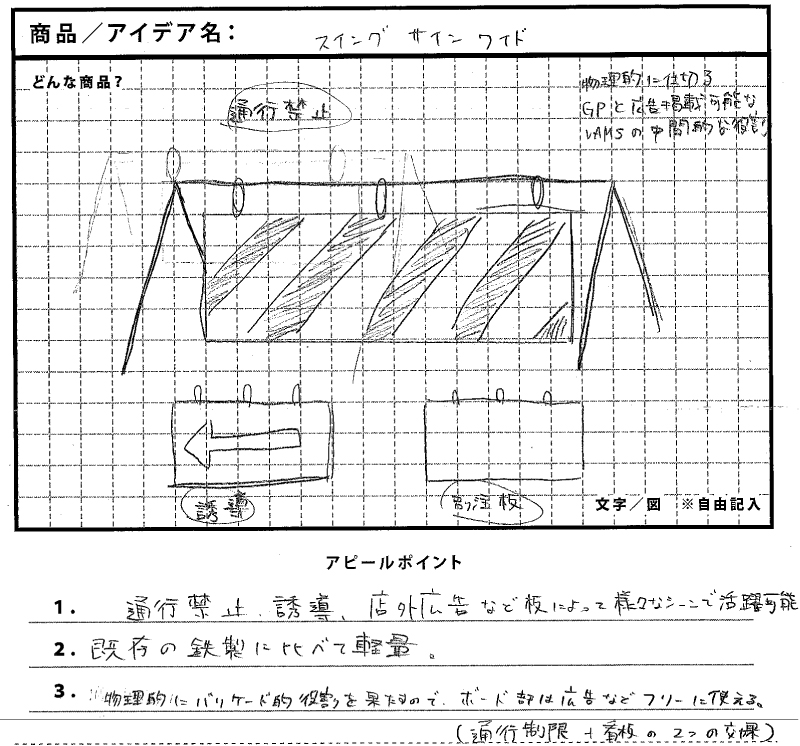 商品／アイデア名：
スイング サイン ワイド
どんな商品？
物理的に仕切る
GPと広告掲載可能な
VAMSの中間的な役割
通行禁止
誘導
別注板
文字／図　※自由記入
アピールポイント
1. 通行禁止、誘導、店外広告など板によって様々なシーンで活躍可能
2. 既存の鉄製に比べて軽量。
3. 物理的にバリケード的役割を果たすので、ボード部は広告などフリーに使える。
(通行制限＋看板の2つの効果)